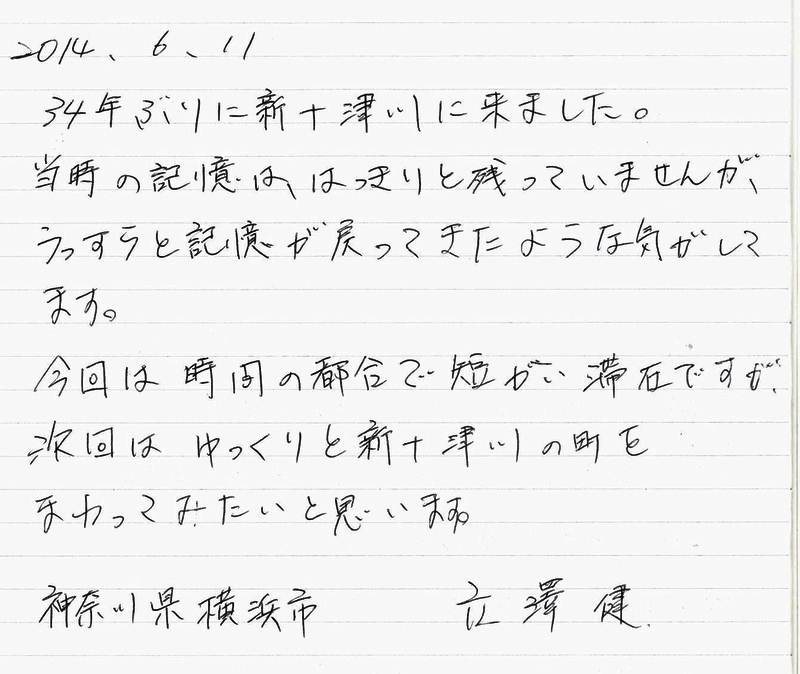 2014、6、11
34年ぶりに新十津川に来ました。
当時の記憶は、はっきりと残っていませんが、
うっすらと記憶が戻ってきたような気がして
ます。
今回は時間の都合で短かい滞在ですが、
次回はゆっくりと新十津川の町を
まわってみたいと思います。
神奈川県横浜市 立澤 健